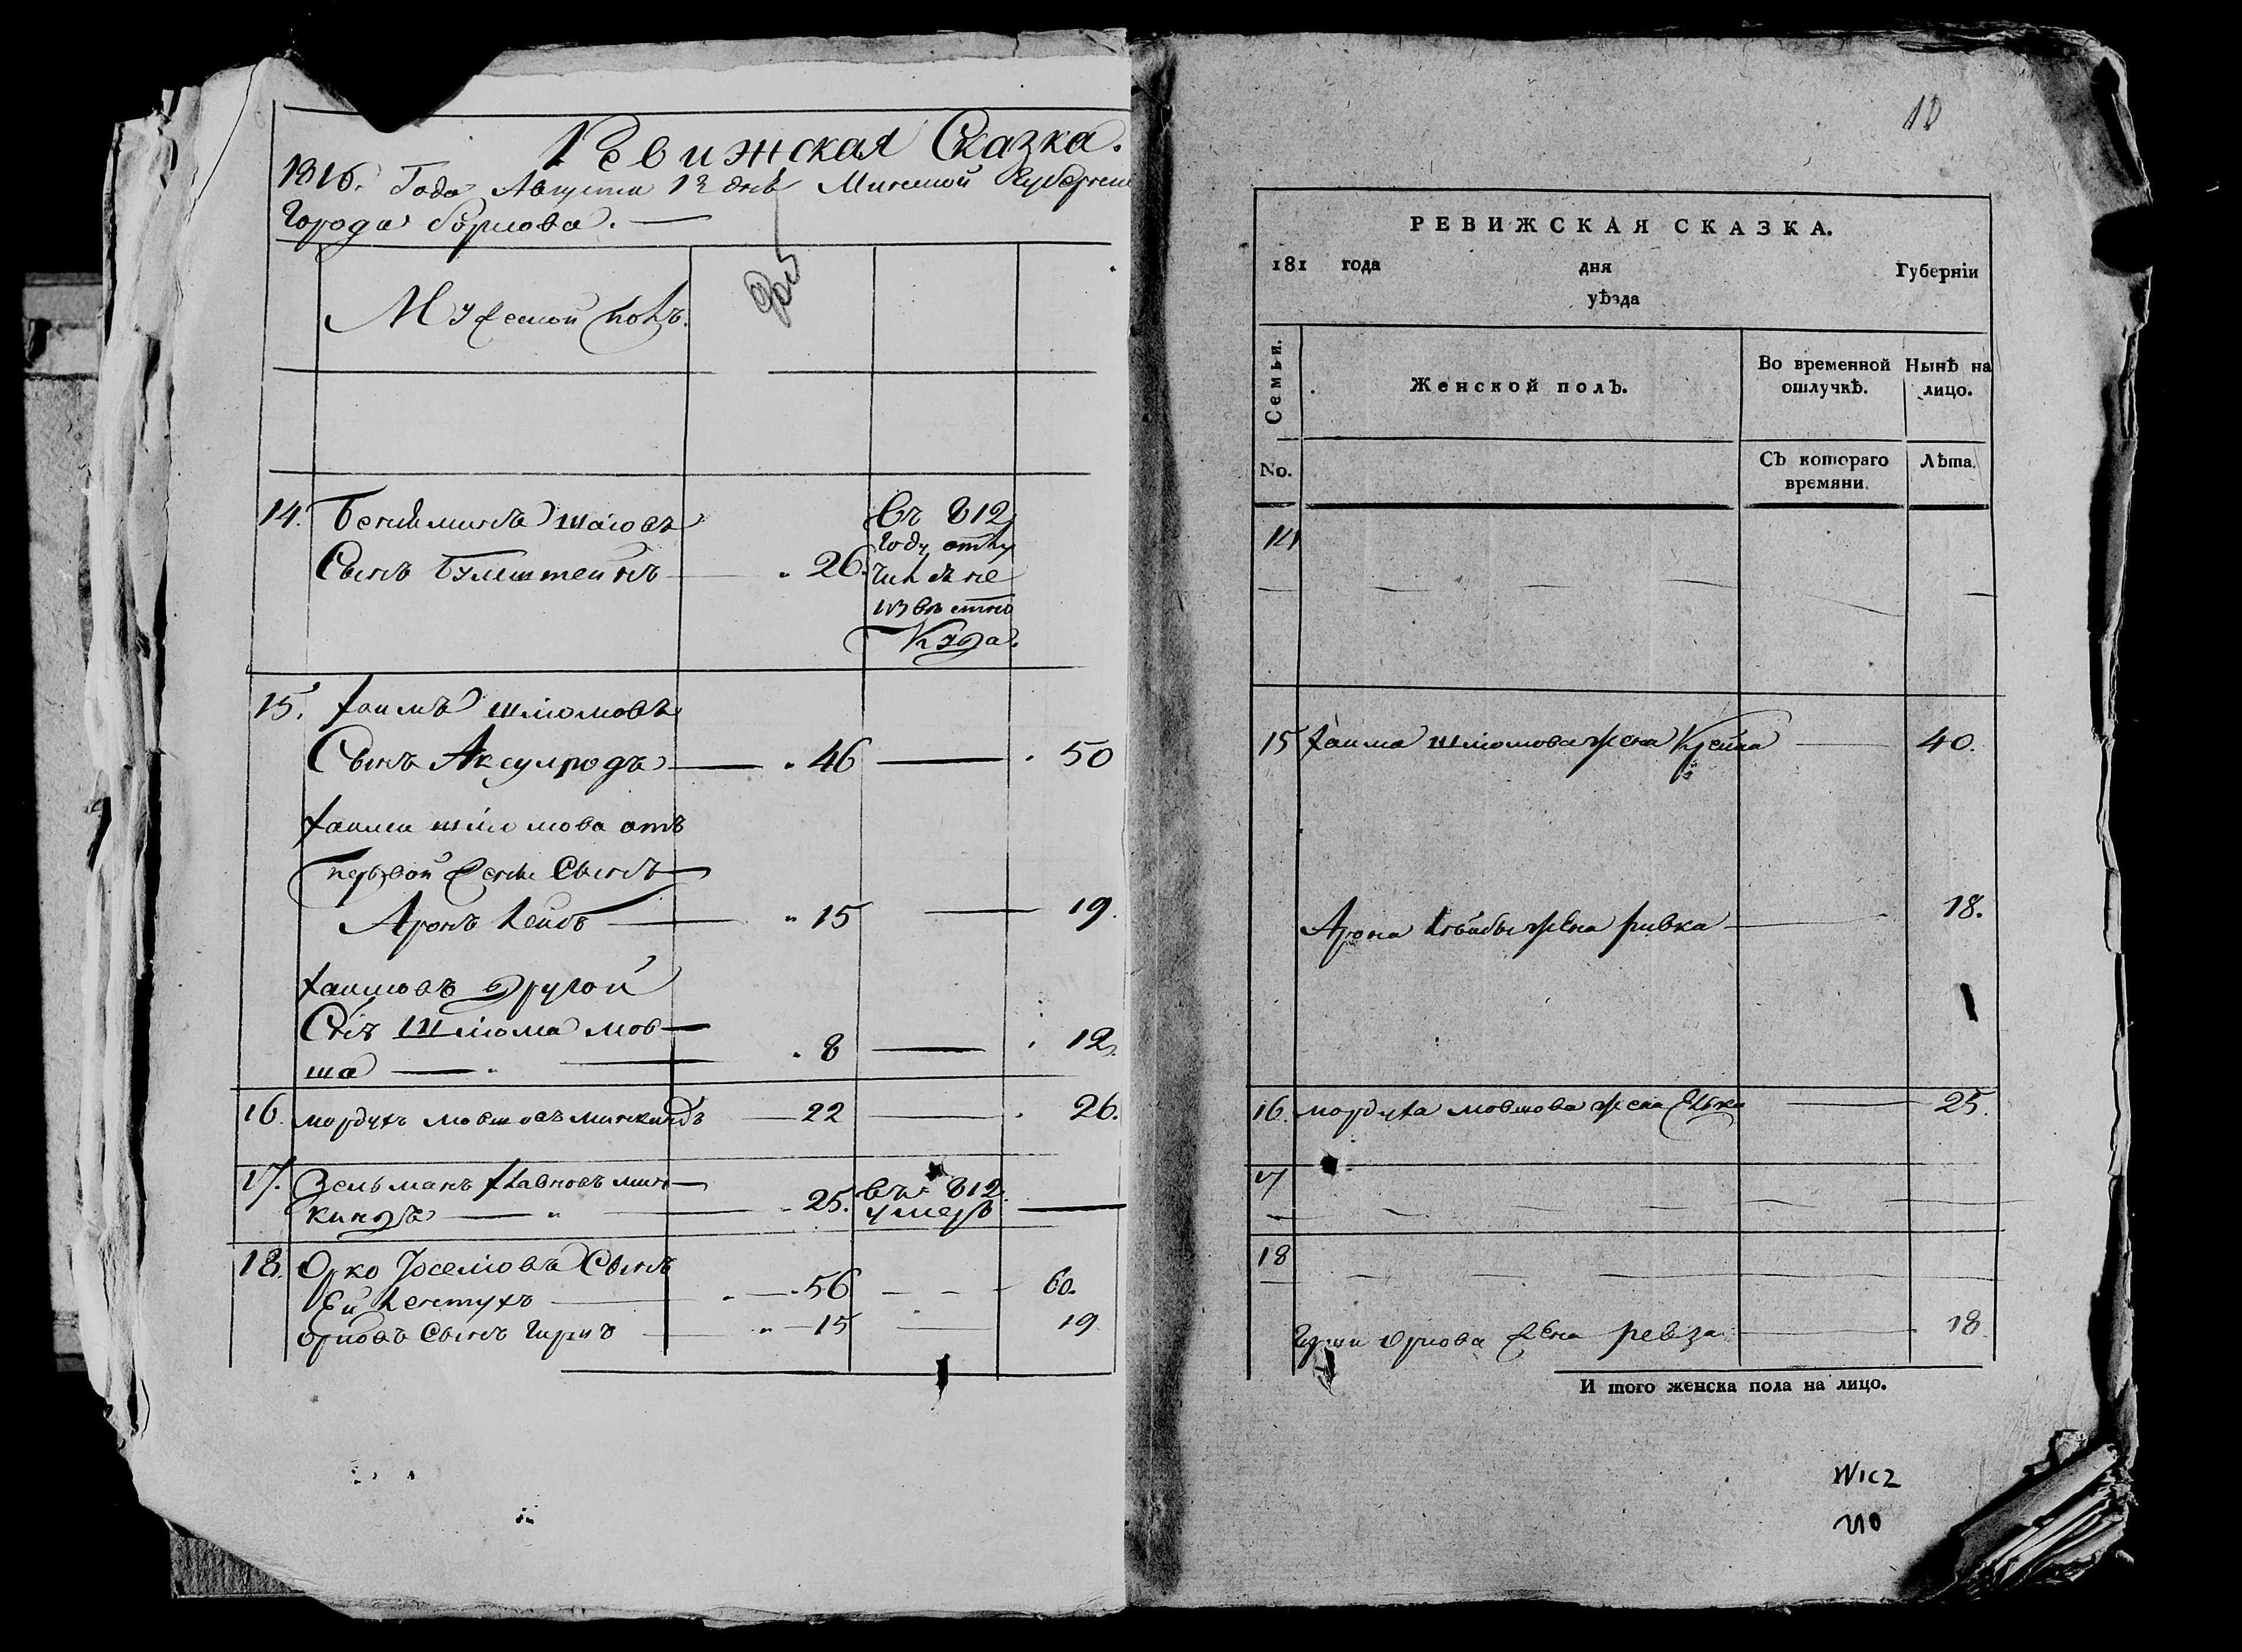 Ревижская Сказка.
1816. Года Августа 12 дня Минской Губернии
Города Борисова.
Мужеской полъ.
14. Бениаминъ Шаіовъ
Сынъ Бумштейнъ 26.
Въ 812
году отлу
чился не
извѣстно
куда.
15. Хаимъ Шліомовъ
Сынъ Аксулродъ 46 50
Хаима Шліомова отъ
первой жены Сынъ
Аронъ Лейбъ 15 19.
Хаимовъ Другой
Снъ Шліома Мов-
ша 8 12.
16. Мордухъ Мовшовъ Минкиндъ 22 26.
17. Зельманъ Хлавновъ Мин-
киндъ 25. Въ 812. умеръ
18. Орко Іоселіовъ Сынъ
Лентухъ 56 60.
Орковъ Сынъ Гиршъ 15 19
10
РЕВИЖСКАЯ СКАЗКА.
181 года дня Губерніи
уѣзда
Семьи. Женской полЪ. Во временной отлучкѣ. Нынѣ на лицо.
No. СЪ котораго времяни. Лѣта.
14
15 Хаима Шліомова жена Крейна 40.
Арона Лейбы жена Ривка 18.
16. Мордуха Мовшова жена Элька 25.
17
18
Гирши Оркова жена Ревза 18.
И того женска пола на лицо.